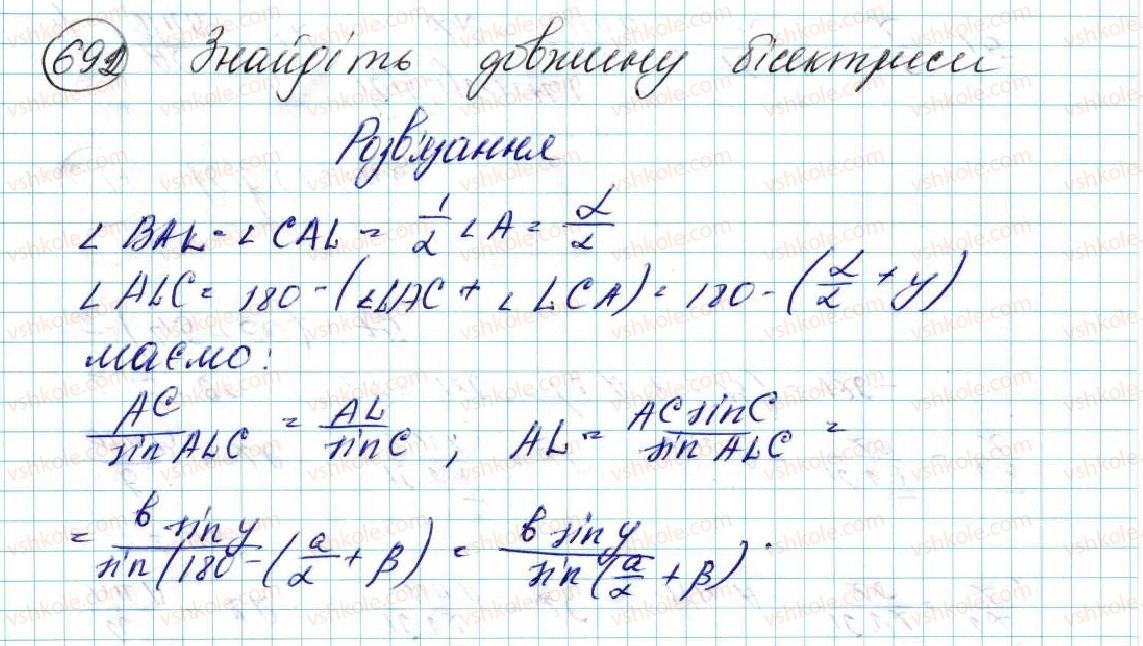 692 Знайдіть довжину бісектриси
Розв'язання
∠ BAL = ∠ CAL = 1/2 ∠ A = α/2
∠ ALC = 180 - (∠LAC + ∠ LCA) = 180 - (α/2 + γ)
маємо:
AC/sin ALC = AL/sin C ; AL = AC sin C/sin ALC =
= b sin γ/sin (180 - (α/2 + β) = b sin γ/sin (α/2 + β) .